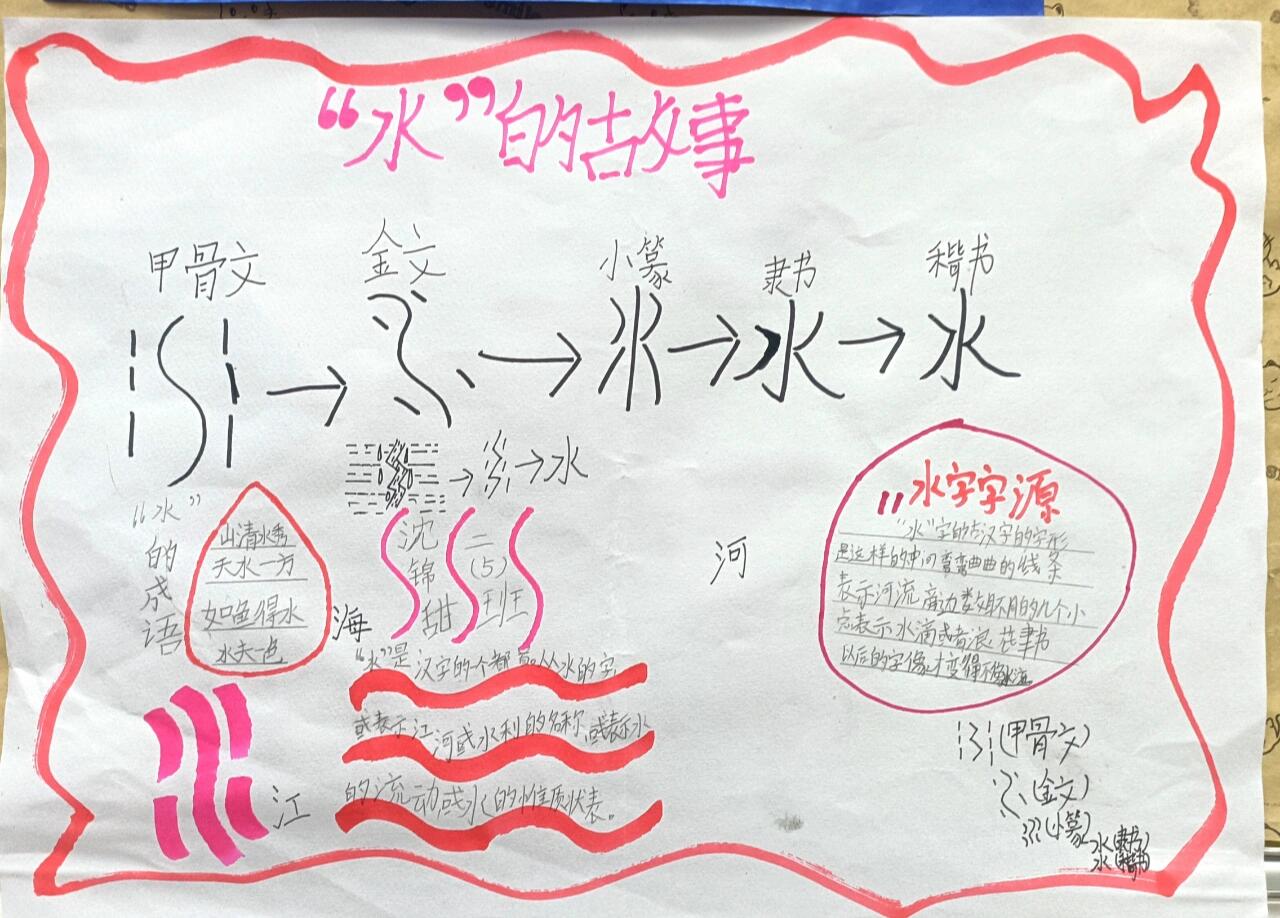 “水”的故事
甲骨文 金文 小篆 隶书 楷书
水 水
水
“水”的成语
山清水秀
天水一方
如鱼得水
水天一色
海
江
河
沈锦甜
二(5)班
“水”是汉字的个部首。从水的字
或表示江河或水利的名称,或表示水
的流动或水的性质状表。
水字字源
“水”字的古汉字的字形
是这样的中间弯弯曲曲的线条
表示河流旁边数目不用的几个小
点表示水滴或者浪花隶书
以后的字像才变得不像水流
(甲骨文)
(金文)
(小篆)
水(隶书)
水(楷书)